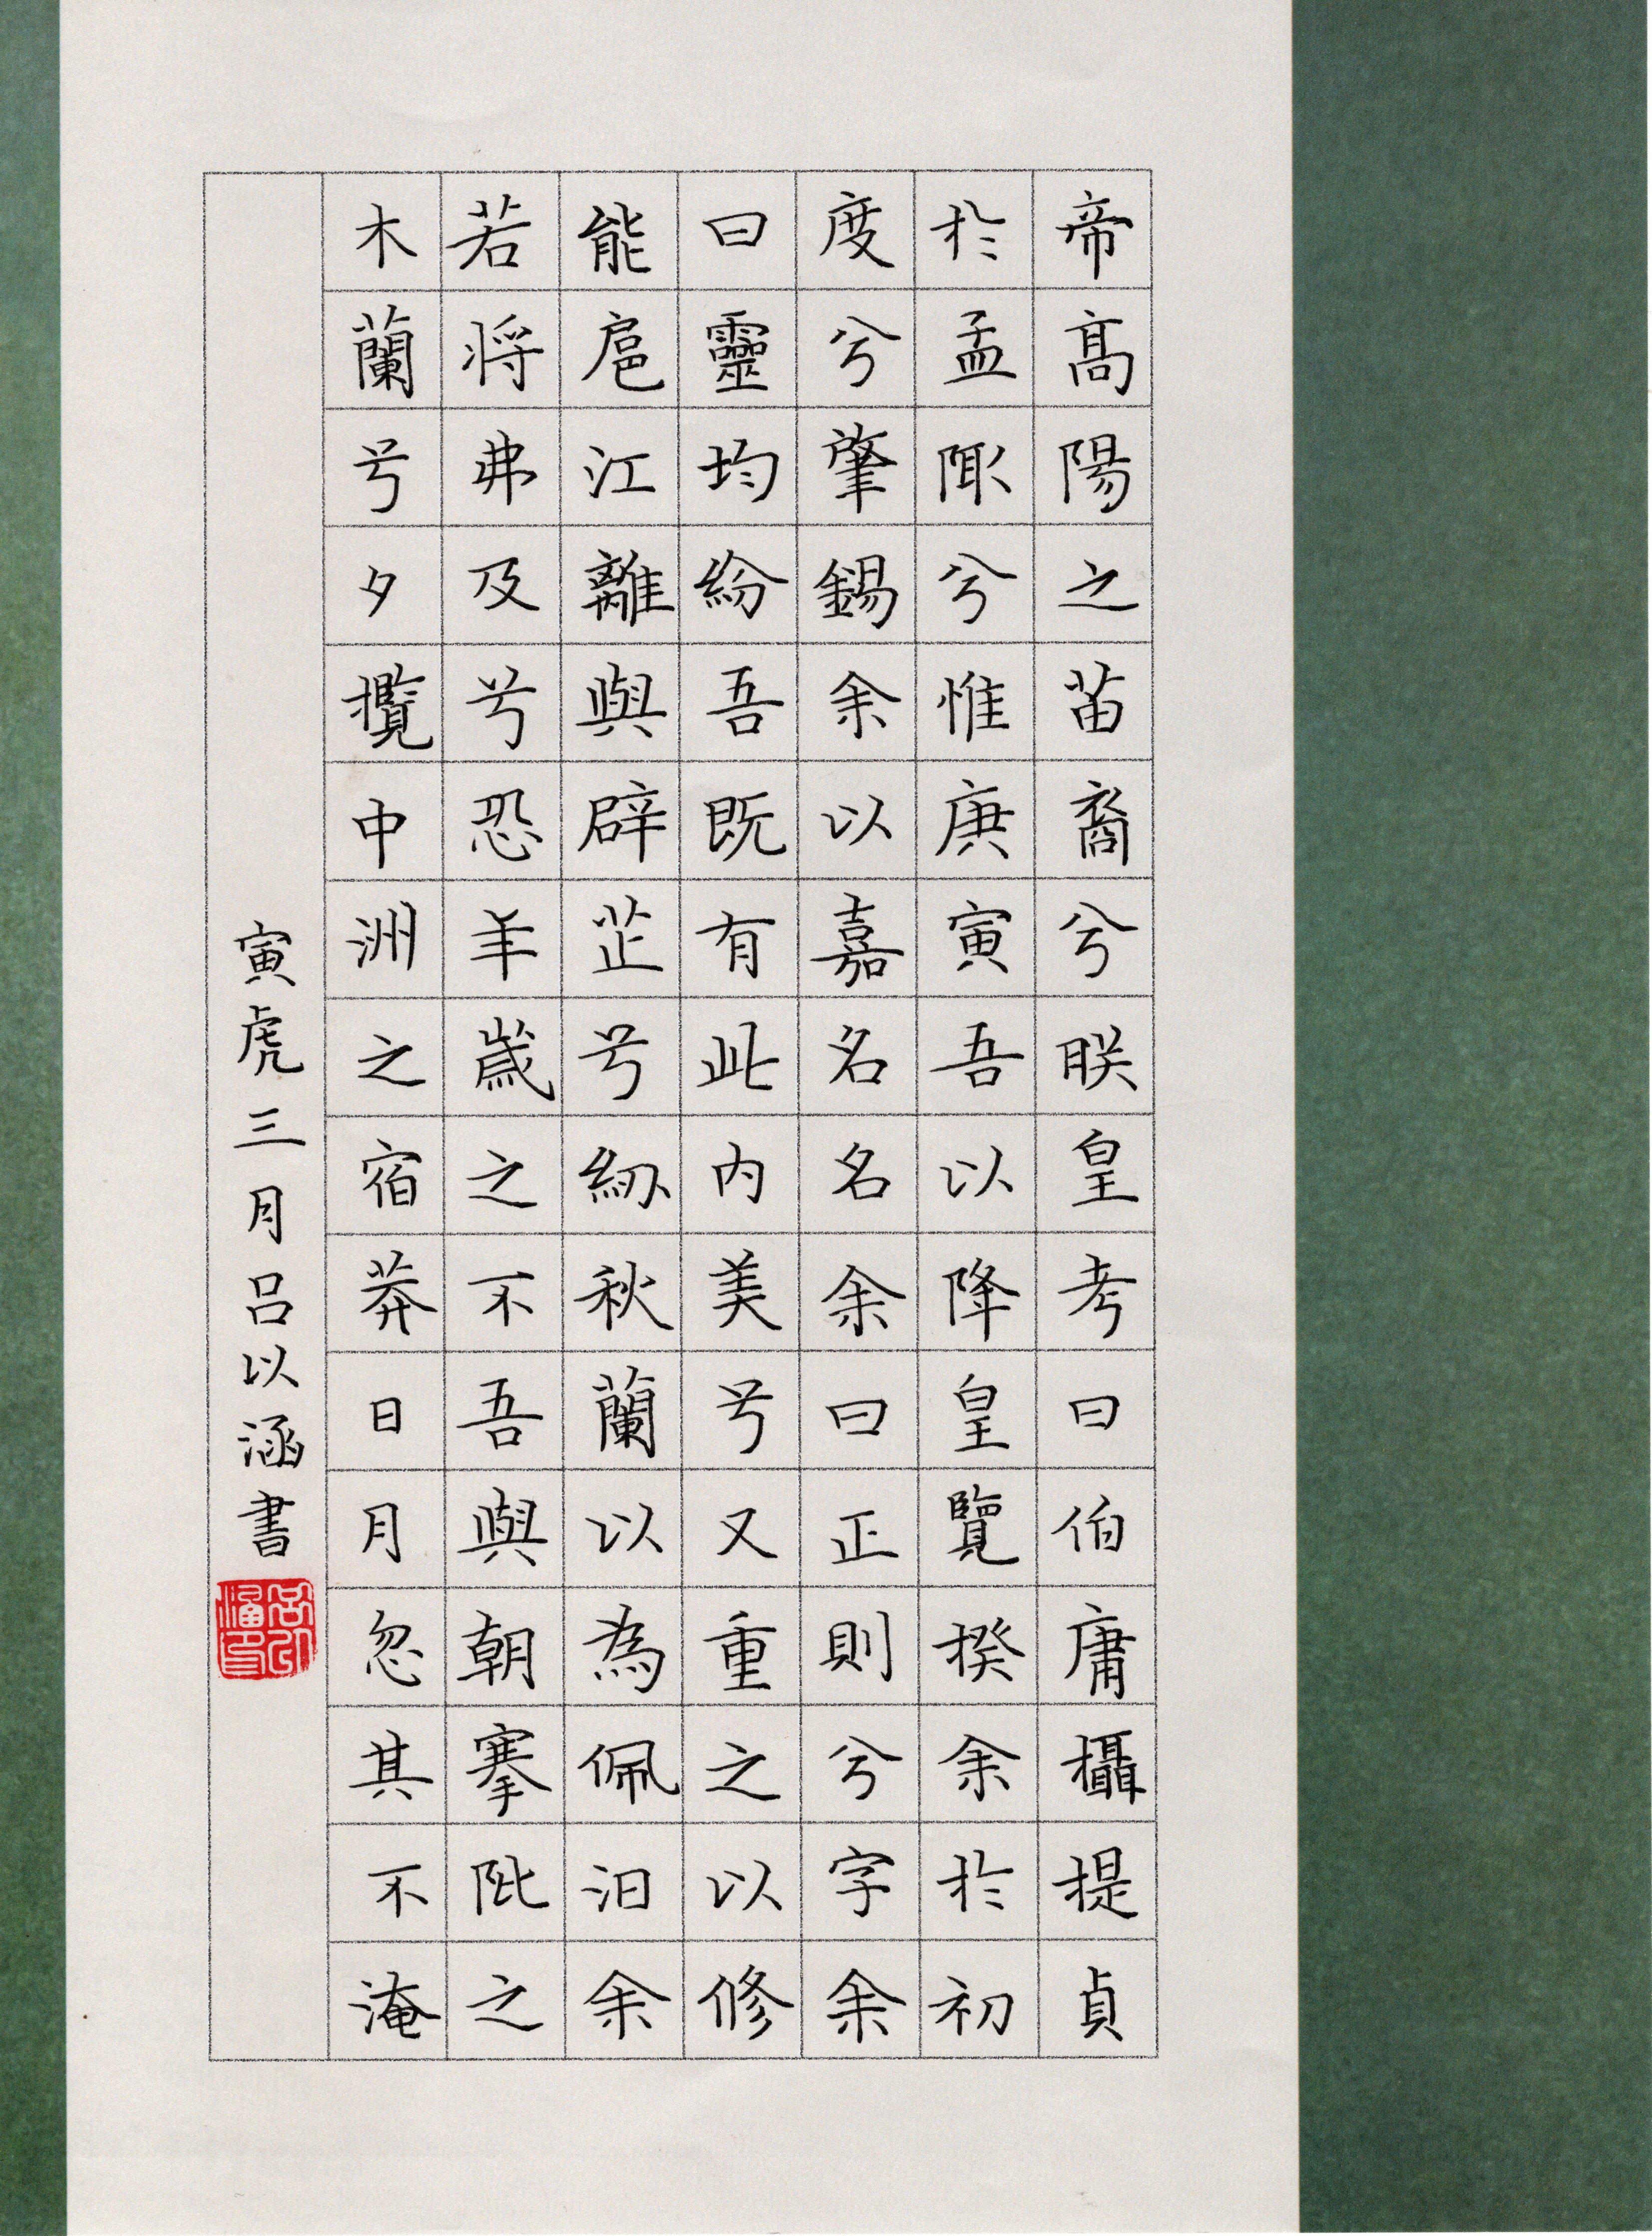 帝高陽之苗裔兮朕皇考曰伯庸攝提貞
於孟陬兮惟庚寅吾以降皇覽揆余於初
度兮肇錫余以嘉名名余曰正則兮字余
曰靈均紛吾既有此內美兮又重之以修
能扈江離與辟芷兮紉秋蘭以為佩汩余
若将弗及兮恐年歲之不吾與朝搴阰之
木蘭兮夕攬中洲之宿莽日月忽其不淹
寅虎三月吕以涵書